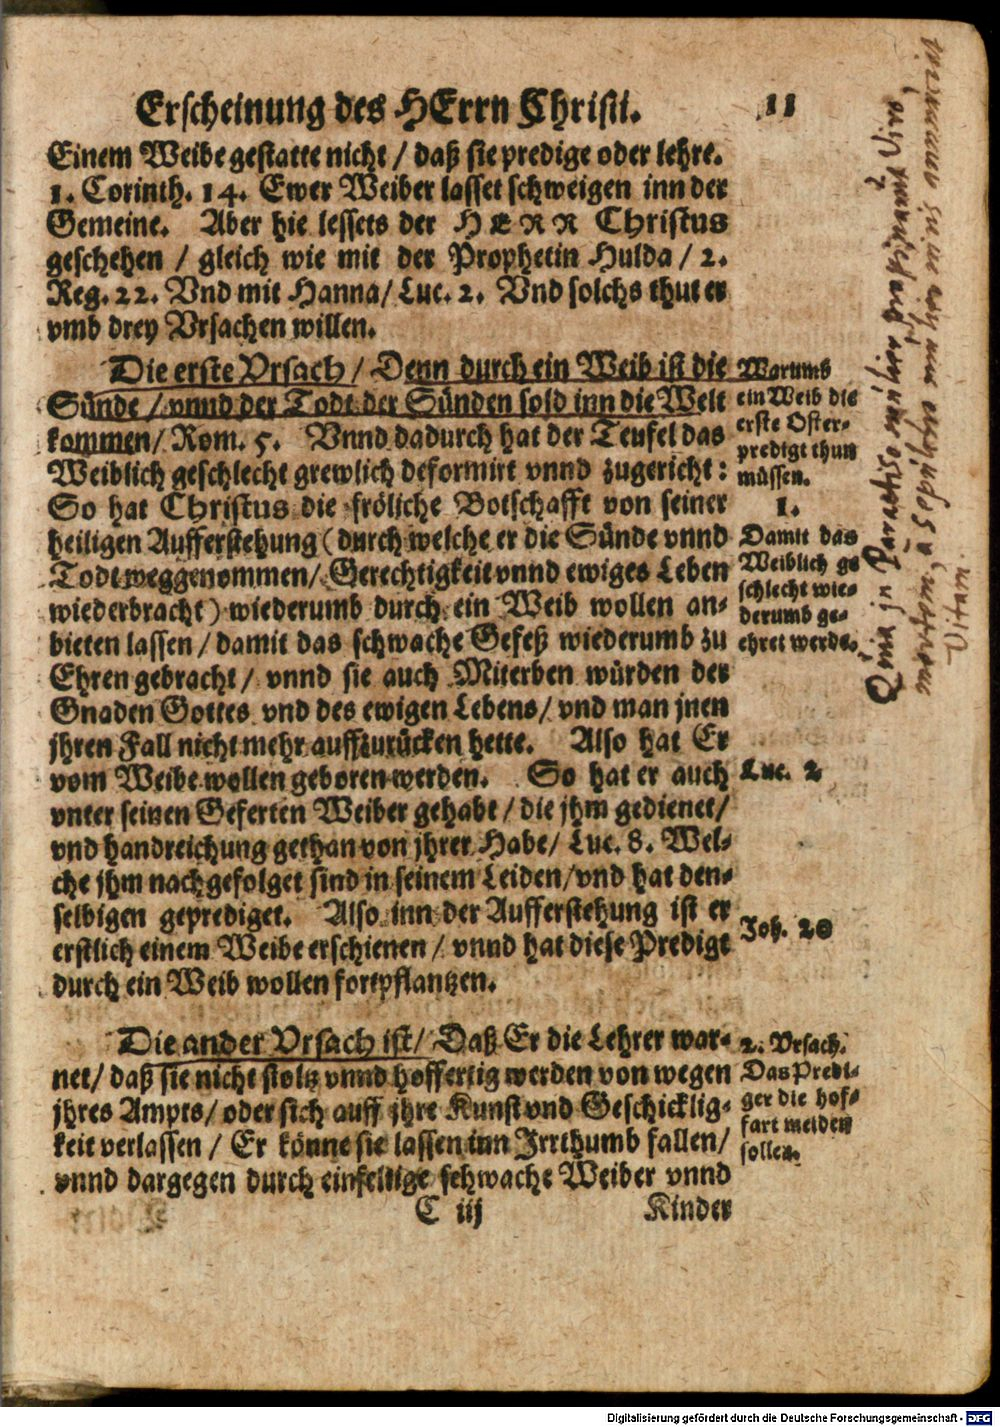 Erscheinung des HErrn Christi. 11
Einem Weibe gestatte nicht / daß sie predige oder lehre.
1. Corinth. 14. Ewer Weiber lasset schweigen inn der
Gemeine. Aber hie lessets der HERR Christus
geschehen / gleich wie mit der Prophetin Hulda / 2.
Reg. 22. Vnd mit Hanna / Luc. 2. Vnd solchs thut er
vmb drey Vrsachen willen.
Die erste Vrsach / Denn durch ein Weib ist die
Sünde / vnnd der Todt der Sünden sold inn die Welt
kommen / Rom. 5. Vnnd dadurch hat der Teufel das
Weiblich geschlecht grewlich deformirt vnnd zugericht:
So hat Christus die fröliche Botschafft von seiner
heiligen Aufferstehung (durch welche er die Sünde vnnd
Todt weggenommen / Gerechtigkeit vnnd ewiges Leben
wiederbracht) wiederumb durch ein Weib wollen an-
bieten lassen / damit das schwache Gefeß wiederumb zu
Ehren gebracht / vnnd sie auch Miterben würden der
Gnaden Gottes vnd des ewigen Lebens / vnd man jnen
jhren Fall nicht mehr auffzurücken hette. Also hat Er
vom Weibe wollen geboren werden. So hat er auch
vnter seinen Geferten Weiber gehabt / die jhm gedienet /
vnd handreichung gethan von jhrer Habe / Luc. 8. Wel-
che jhm nachgefolget sind in seinem Leiden / vnd hat den-
selbigen geprediget. Also inn der Aufferstehung ist er
erstlich einem Weibe erschienen / vnnd hat diese Predigt
durch ein Weib wollen fortpflantzen.
Die ander Vrsach ist / Daß Er die Lehrer war-
net / daß sie nicht stoltz vnnd hoffertig werden von wegen
jhres Ampts / oder sich auff jhre Kunst vnd Geschicklig-
keit verlassen / Er könne sie lassen inn Irrthumb fallen /
vnnd dargegen durch einfeltige schwache Weiber vnnd
C iij Kinder
Warumb
ein Weib die
erste Oster-
predigt thun
müssen.
1.
Damit das
Weiblich ge
schlecht wie-
derumb ge-
ehret werde.
Luc. 2
Joh. 20
2. Vrsach.
Das Predi-
ger die hof-
fart meiden
sollen.
Quia in Paradiso mulier
Vitam
Digitalisierung gefördert durch die Deutsche Forschungsgemeinschaft - DFG